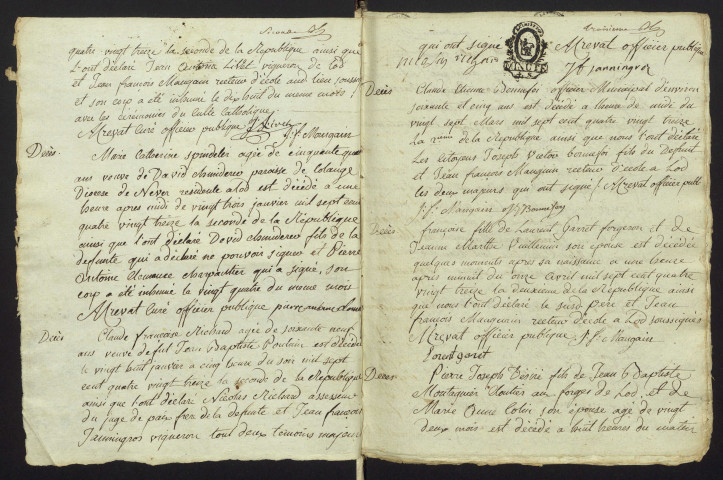 quatre vingt treize la seconde de la République ainsi que
l'ont déclaré Jean Antoine vigneron de Lod
et Jean françois Maugain recteur d'école aud lieu soussignés
et son corp a été inhumé le dix huit du meme mois
avec les cérémonies du Culte Catholique
Mreval Curé officier publique J. f. Maugain
Deces Marie Catherine Spindeler agée de cinquante quatre
ans veuve de David Chmiderer paroisse de Colange
Diocese de Never residente a Lod est décédé a une
heure après midi de vingt trois janvier mil sept cent
quatre vingt treize la seconde de la République
ainsi que l'ont déclaré David Chmiderer fils de la
defunte qui a déclaré ne pouvoir signer et Pierre
Antoine charpentier qui a signé, son
corp a été inhumé le vingt quatre du meme mois
Mreval Curé officier publique pierre antoine
Deces Claude françoise Richard agée de soixante neuf
ans veuve de fut Jean Baptiste Poulain est décédée
le vingt huit janvier a cinq heure du soir mil sept
cent quatre vingt treize la seconde de la République
ainsi que l'ont déclaré Nicolas Richard assesseur
du juge de paix frere de la defunte et Jean françois
Janningros vigneron tout deux temoins majeurs
troisieme
qui ont signé Mreval officier publique
Jf janningros
Deces Claude Etienne Bonnefoy officier Municipal d'environ
soixante et cinq ans est décédé a l'heure de midi du
vingt sept Mars mil sept cent quatre vingt treize
La 2eme de la République ainsi que nous l'ont déclaré
Les citoyens Joseph Victor Bonnefoy fils du Defunt
et Jean françois Maugain recteur d'école a Lod
les deux majeurs qui ont signé Mreval officier publ
J. f. Maugain Bonnefoy
Deces françoise fille de Laurent Garret forgeron et de
Jeanne Marthe Vuillemin son épouse est décédée
quelques moments après sa naissance a une heure
après minuit du onze Avril mil sept cent quatre
vingt treize la deuxieme de la République ainsi
que nous l'ont déclaré le susd. pere et Jean
françois Maugain recteur d'école a Lod soussignés
Mreval officier publique J. f. Maugain
Lorent garet
Deces Pierre Joseph Désiré fils de Jean Baptiste
Montagnier Cloutier aux forges de Lod, et de
Marie Anne Colin son épouse agé de vingt
deux mois est décédé a huit heures du matin